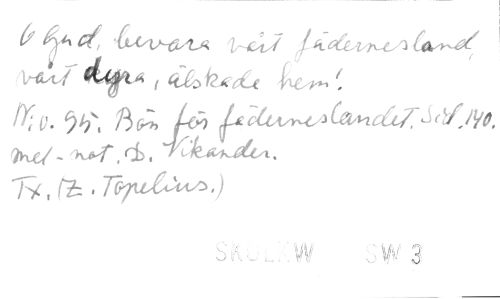 O Gud, bevara vårt fädernesland,
vårt dyra, älskade hem!
N:o. 95. Bön för fäderneslandet. Sid. 140.
mel-not. D. Vikander.
Tx. (Z. Topelius.)
SKOLKW SW 3